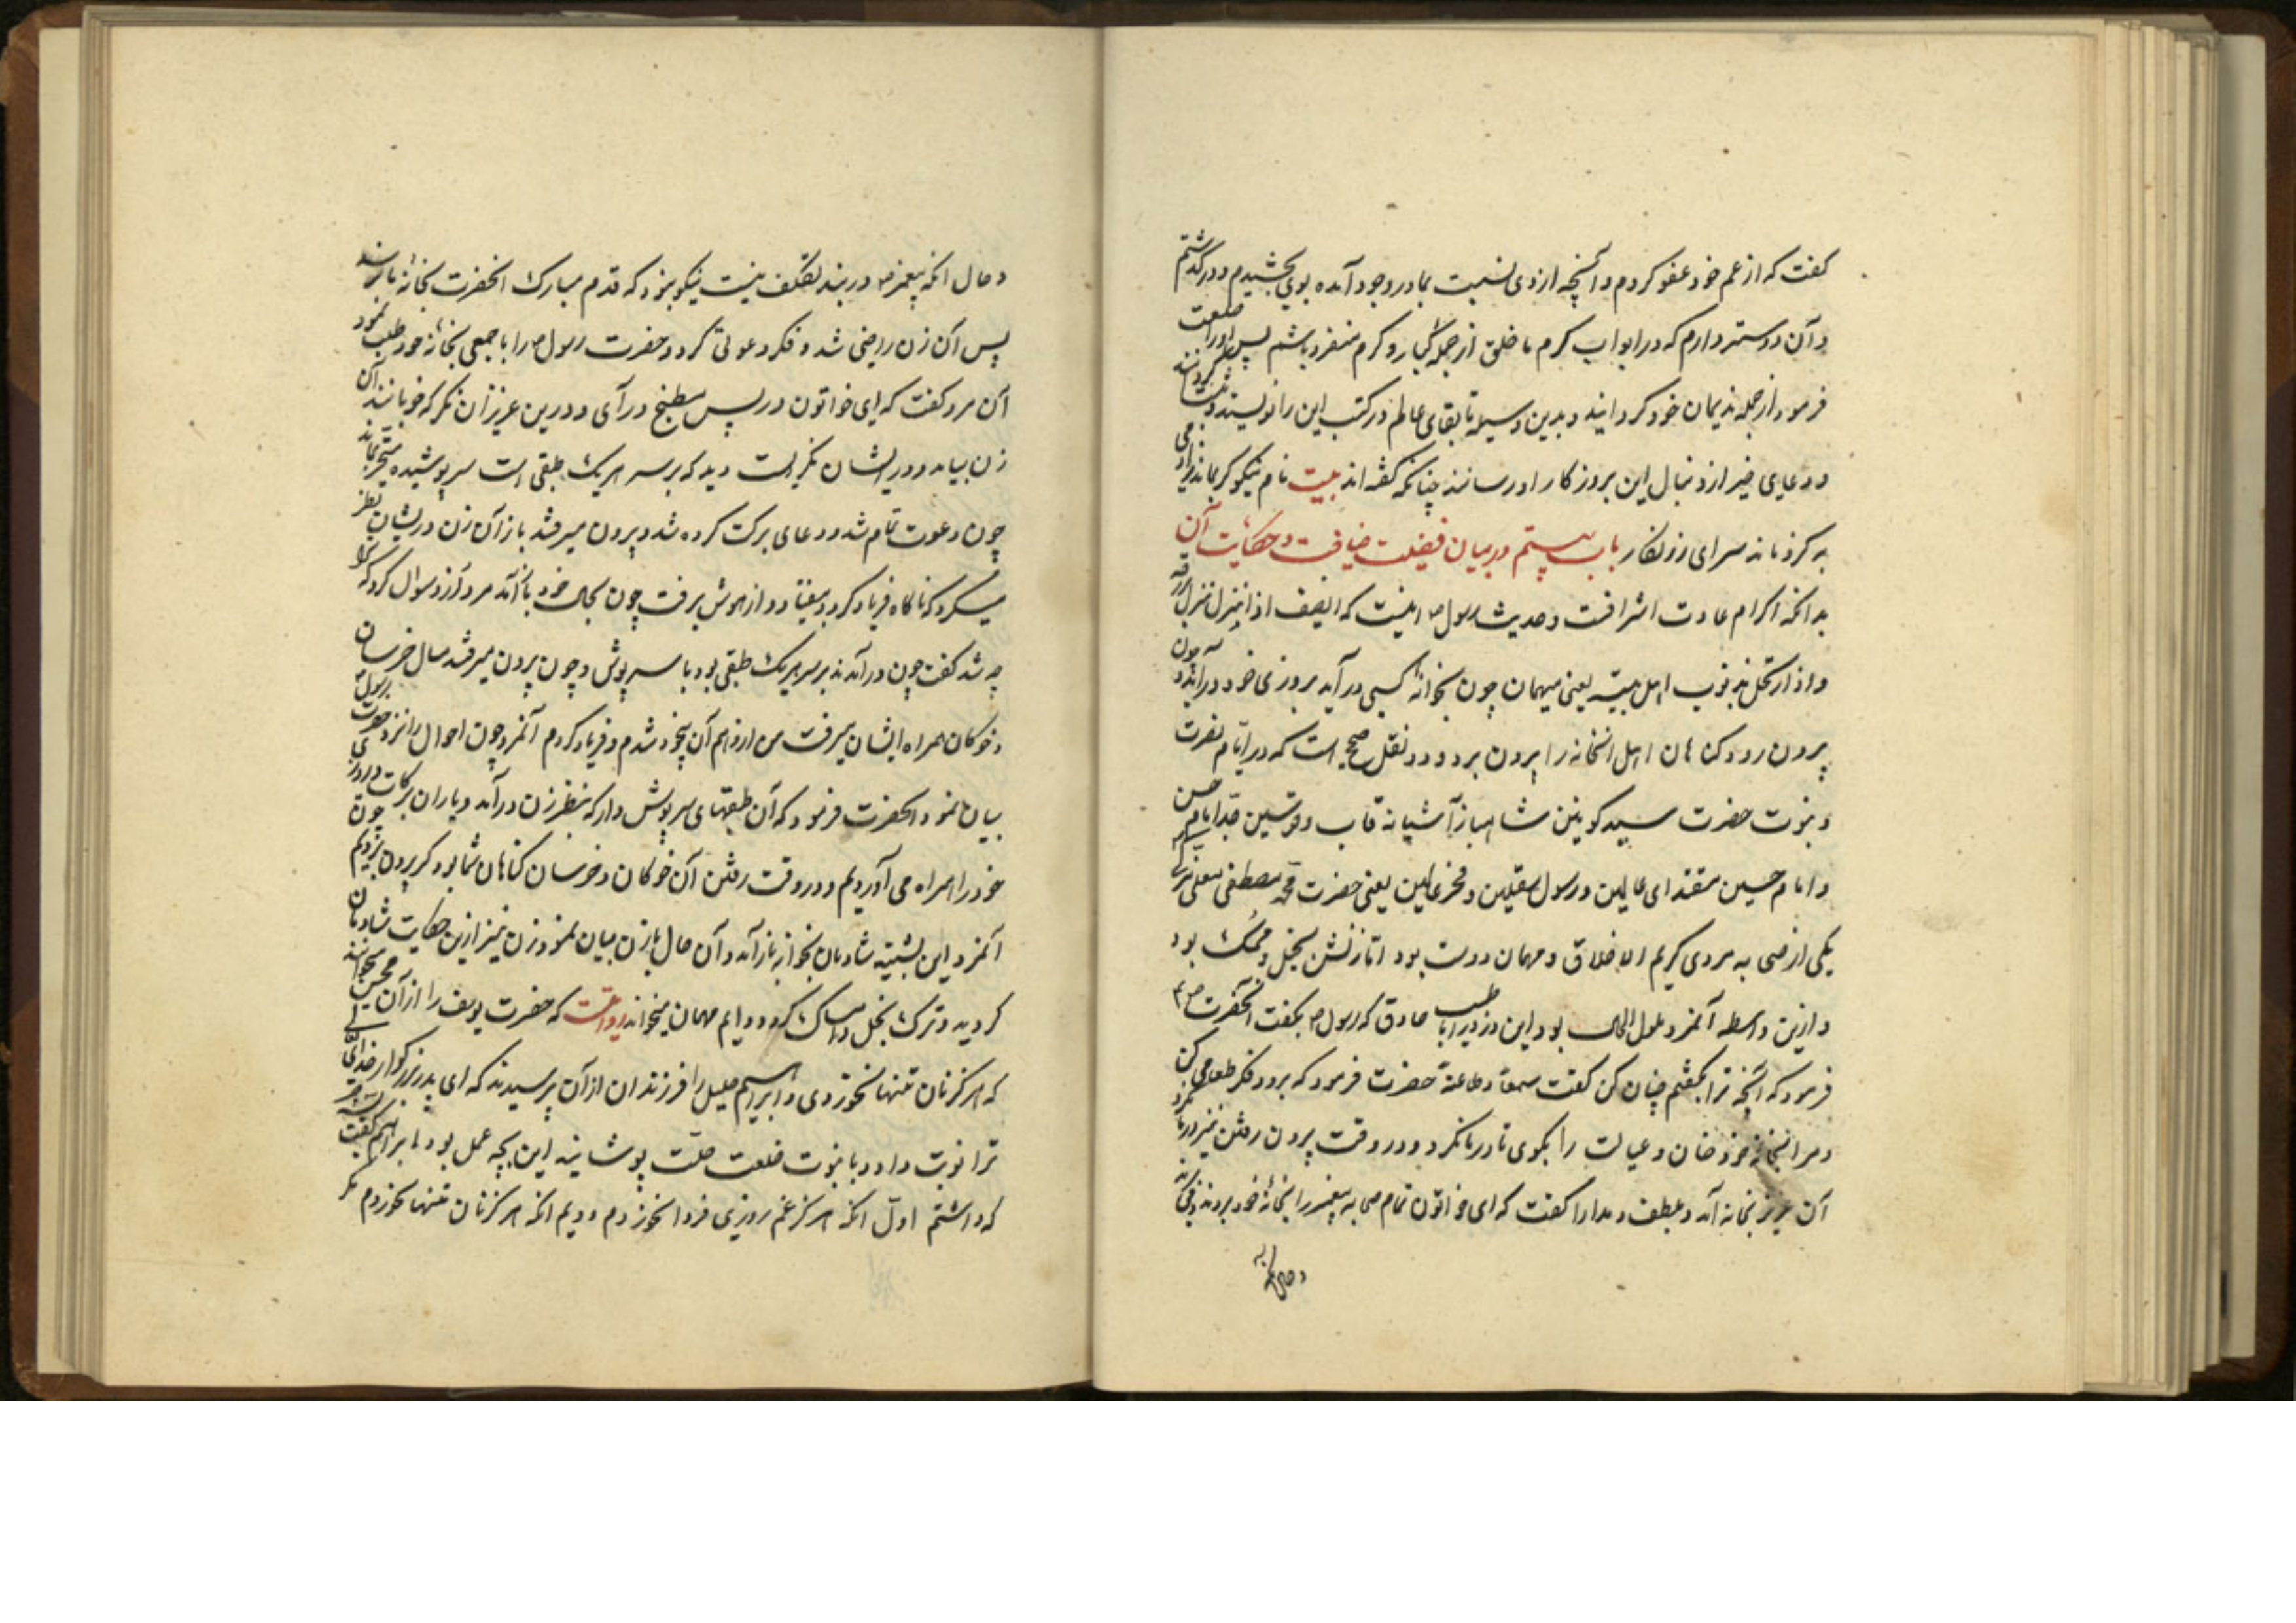 کفت که از غم خود عفو کردم و آنچه از وی نسبت بما در وجود آمده بوی بخشیدم و درگذشتم
و آن دوستر دارم که در ابواب کرم با خلق از جمله کبار و کرم منفرد باشم پس او را خلعت
فرمود از جمله ندیمان خود کردانید و بدین وسیله تا بقای عالم در کتب این را نویسند
و دعای خیر از دنبال این بروزکار او رسانند چنانکه کفته‌اند بیت نام نیکو کر بماند ز آدمی
به کزو ماند سرای زرنکار باب بیستم در بیان فضیلت ضیافت و حکایت آن
بدانکه اکرام عادت اشرافست و حدیث رسول ص اینست که الضیف اذا نزل نزل برزقه
و اذا ارتحل بذنوب اهل بیته یعنی میهمان چون بخوانهٔ کسی در آید بروزی خود در آید و چون
بیرون رود کناهان اهل انخانه را بیرون برد و در نقل صحیح است که در ایام نصرت
و نبوت حضرت سید کونین شاهباز آشیانه قاب قوسین جد امام حسن
و امام حسین مقتدای عالمین و رسول ثقلین و فخر عالمین یعنی حضرت محمد مصطفی
یکی از صحابه مردی کریم الاخلاق و مهمان دوست بود اما زنش بخیل و ممسک بود
و ازین واسطه آنمرد ملول الحال بود این درد را با طبیب صادق که رسول ص بکفت آنحضرت ص
فرمود که آنچه ترا بکفتم چنان کن کفت سمعا و طاعة حضرت فرمود که برو و فکر طعامی کن
و مرا انجا فرو خوان و عیالت را بکوی تا در ما نکرد و در وقت بیرون رفتن نیز در ما نکرد
آن عزیز بخانه آمد و بلطف و مدارا کفت که ای خواتون تمام صحابه پیغمبر را بخانهٔ خود بردند
و حال آنکه
و حال انکه پیغمبر ص در بند تکلف نیست نیکو بود که قدم مبارک انحضرت بخانهٔ ما رسد
پس آن زن راضی شد و فکر دعوتی کرد و حضرت رسول ص را با جمعی بخانهٔ خود طلب نمود
آن مرد کفت که ای خواتون در پس مطبخ درآی و درین عزیزان نکر که خوبانند آن
زن بیامد و در ایشان نکریست دید که بر سر هر یک طبقی است سرپوشیده متحیر بماند
چون دعوت تمام شد و دعای برکت کرده شد و بیرون میرفتند باز آن زن در ایشان نظر
میکرد که ناکاه فریاد کرد و بیفتاد و از هوش برفت چون بحال خود باز آمد مرد ازو سوال کرد که ترا
چه شد کفت چون در آمدند بر سر هر یک طبقی بود با سرپوش و چون بیرون میرفتند خرسان
و خوکان همراه ایشان میرفت من از وهم آن بیخود شدم و فریاد کردم آنمرد چون احوال را نزد حضرت رسول
بیان نمود آنحضرت فرمود که آن طبقهای سرپوش دار که بنظر زن در آمد و باران برکات و روزی
خود را همراه می آوردیم و در وقت رفتن آن خوکان و خرسان کناهان شما بود که بیرون بردیم چون
آنمرد این بشنید شادمان بخوانه باز آمد و آن حال بازن بیان نمود زن نیز ازین حکایت شادمان
کردید و ترک بخل و امساک کرد و دایم مهمان میخواند روایتست که حضرت یوسف را از آن محسن میخوانند
که هرکز نان تنها نخوردی و ابراهیم خلیل را فرزندان از آن پرسیدند که ای پدر بزرکوار خدای
ترا نوبت داد و با نبوت خلعت خلت پوشانید این بچه عمل بود ابراهیم کفت
که داشتم اول انکه هرکز غم روزی فردا نخوردم دویم انکه هرکز نان تنها نخوردم مکر